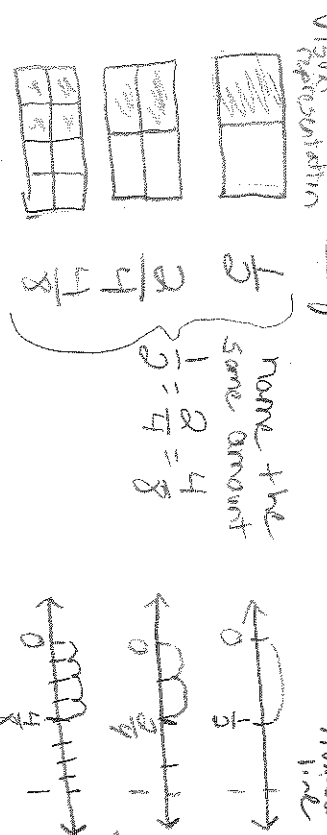 visual
representation
1/2
2/4
4/8
name the
same amount
1/2 = 2/4 = 4/8
line
0 1/2 1
0 2/4 1
0 4/8 1